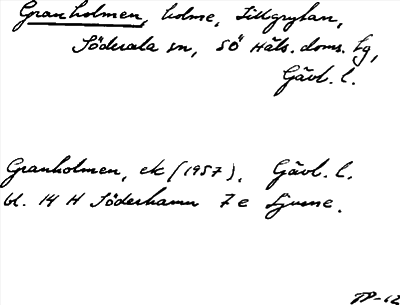 Granholmen, holme, Lillgrytan,
Söderala sn, Sö Häls. doms. lg,
Gävl. l.
Granholmen, ek (1957), Gävl. l.
bl. 14 H Söderhamn 7 e Ljusne.
-62